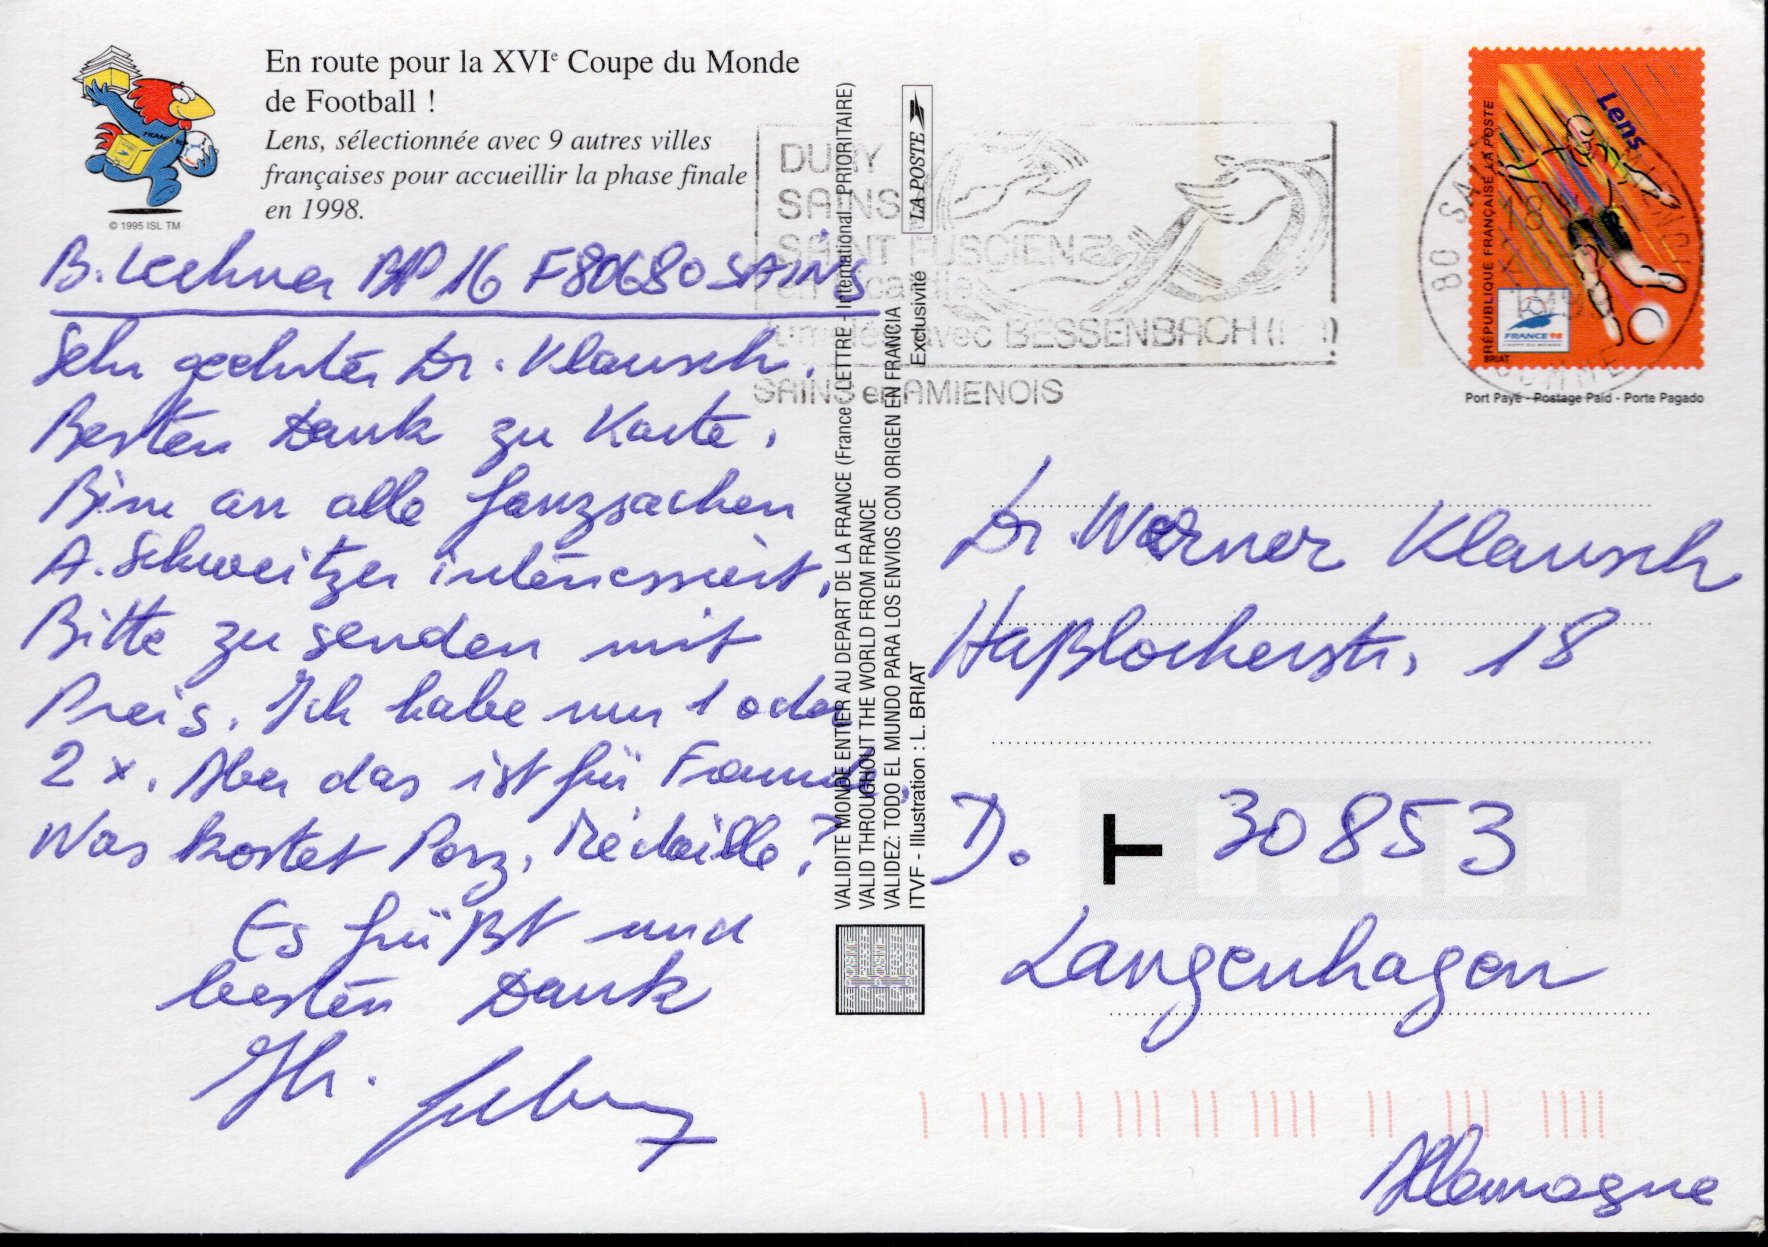 En route pour la XVIe Coupe du Monde
de Football !
Lens, sélectionnée avec 9 autres villes
françaises pour accueillir la phase finale
en 1998.
© 1995 ISL TM
B. Lechner BP 16 F80680 SAINS
Sehr geehrter Dr. Klausch,
Besten Dank zu Karte.
Bin an alle Ganzsachen
A. Schweitzer interessiert,
Bitte zu senden mit
Preis. Ich habe nur 1 oder
2 x. Aber das ist für Freunde.
Was kostet Porz. Médaille?
Es grüßt und
besten Dank
Ihr.
VALIDITE MONDE ENTIER AU DEPART DE LA FRANCE (France LETTRE - International PRIORITAIRE)
VALID THROUGHOUT THE WORLD FROM FRANCE
VALIDEZ: TODO EL MUNDO PARA LOS ENVIOS CON ORIGEN EN FRANCIA
ITVF - Illustration : L. BRIAT
Exclusivité
LA POSTE
DURY
SAINS
SAINT FUSCIEN
en Picardie
avec BESSENBACH
SAINS en AMIENOIS
80 SAINS
SOMME
Lens
RÉPUBLIQUE FRANÇAISE LA POSTE
BRIAT
FRANCE 98
COUPE DU MONDE
Port Payé - Postage Paid - Porte Pagado
Dr. Werner Klausch
Haßlocherstr. 18
D. 30853
T
Langenhagen
Allemagne